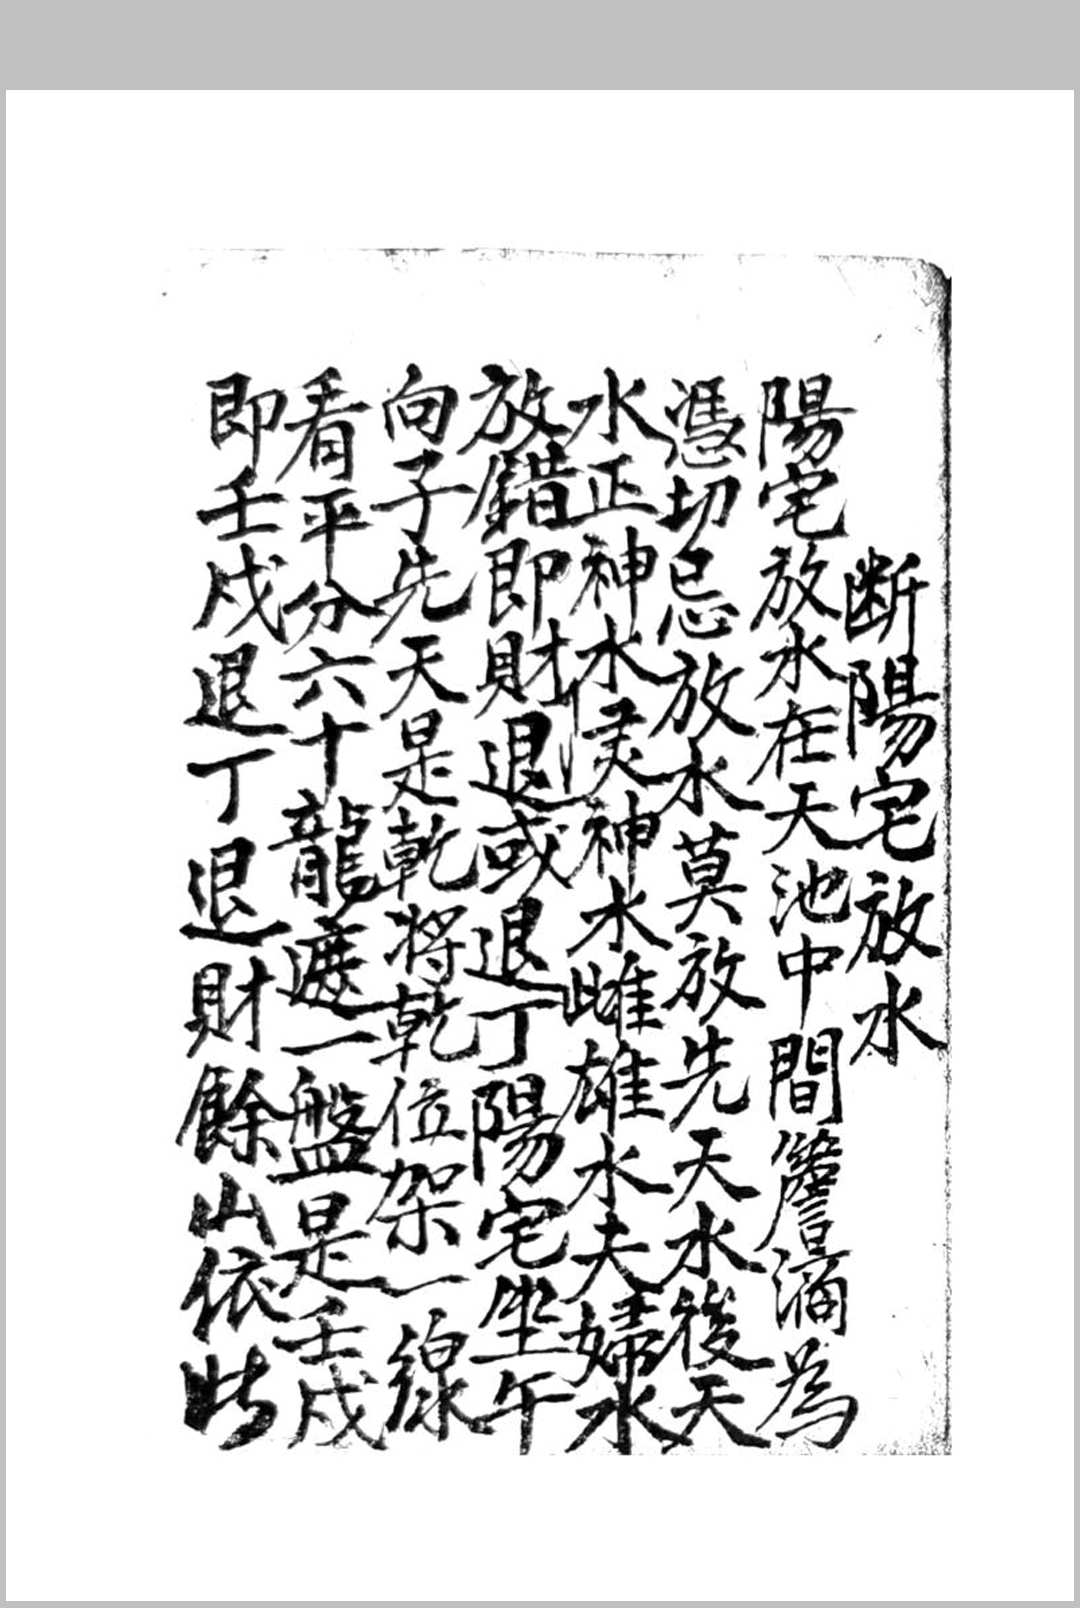 断陽宅放水
陽宅放水在天池中間簷滴為
憑切忌放水莫放先天水後天
水正神水灵神水雌雄水夫婦水
放錯即財退或退丁陽宅坐午
向子先天是乾將乾位架一線
看平分六十龍遁一盤是壬戌
即壬戌退丁退財餘山依此